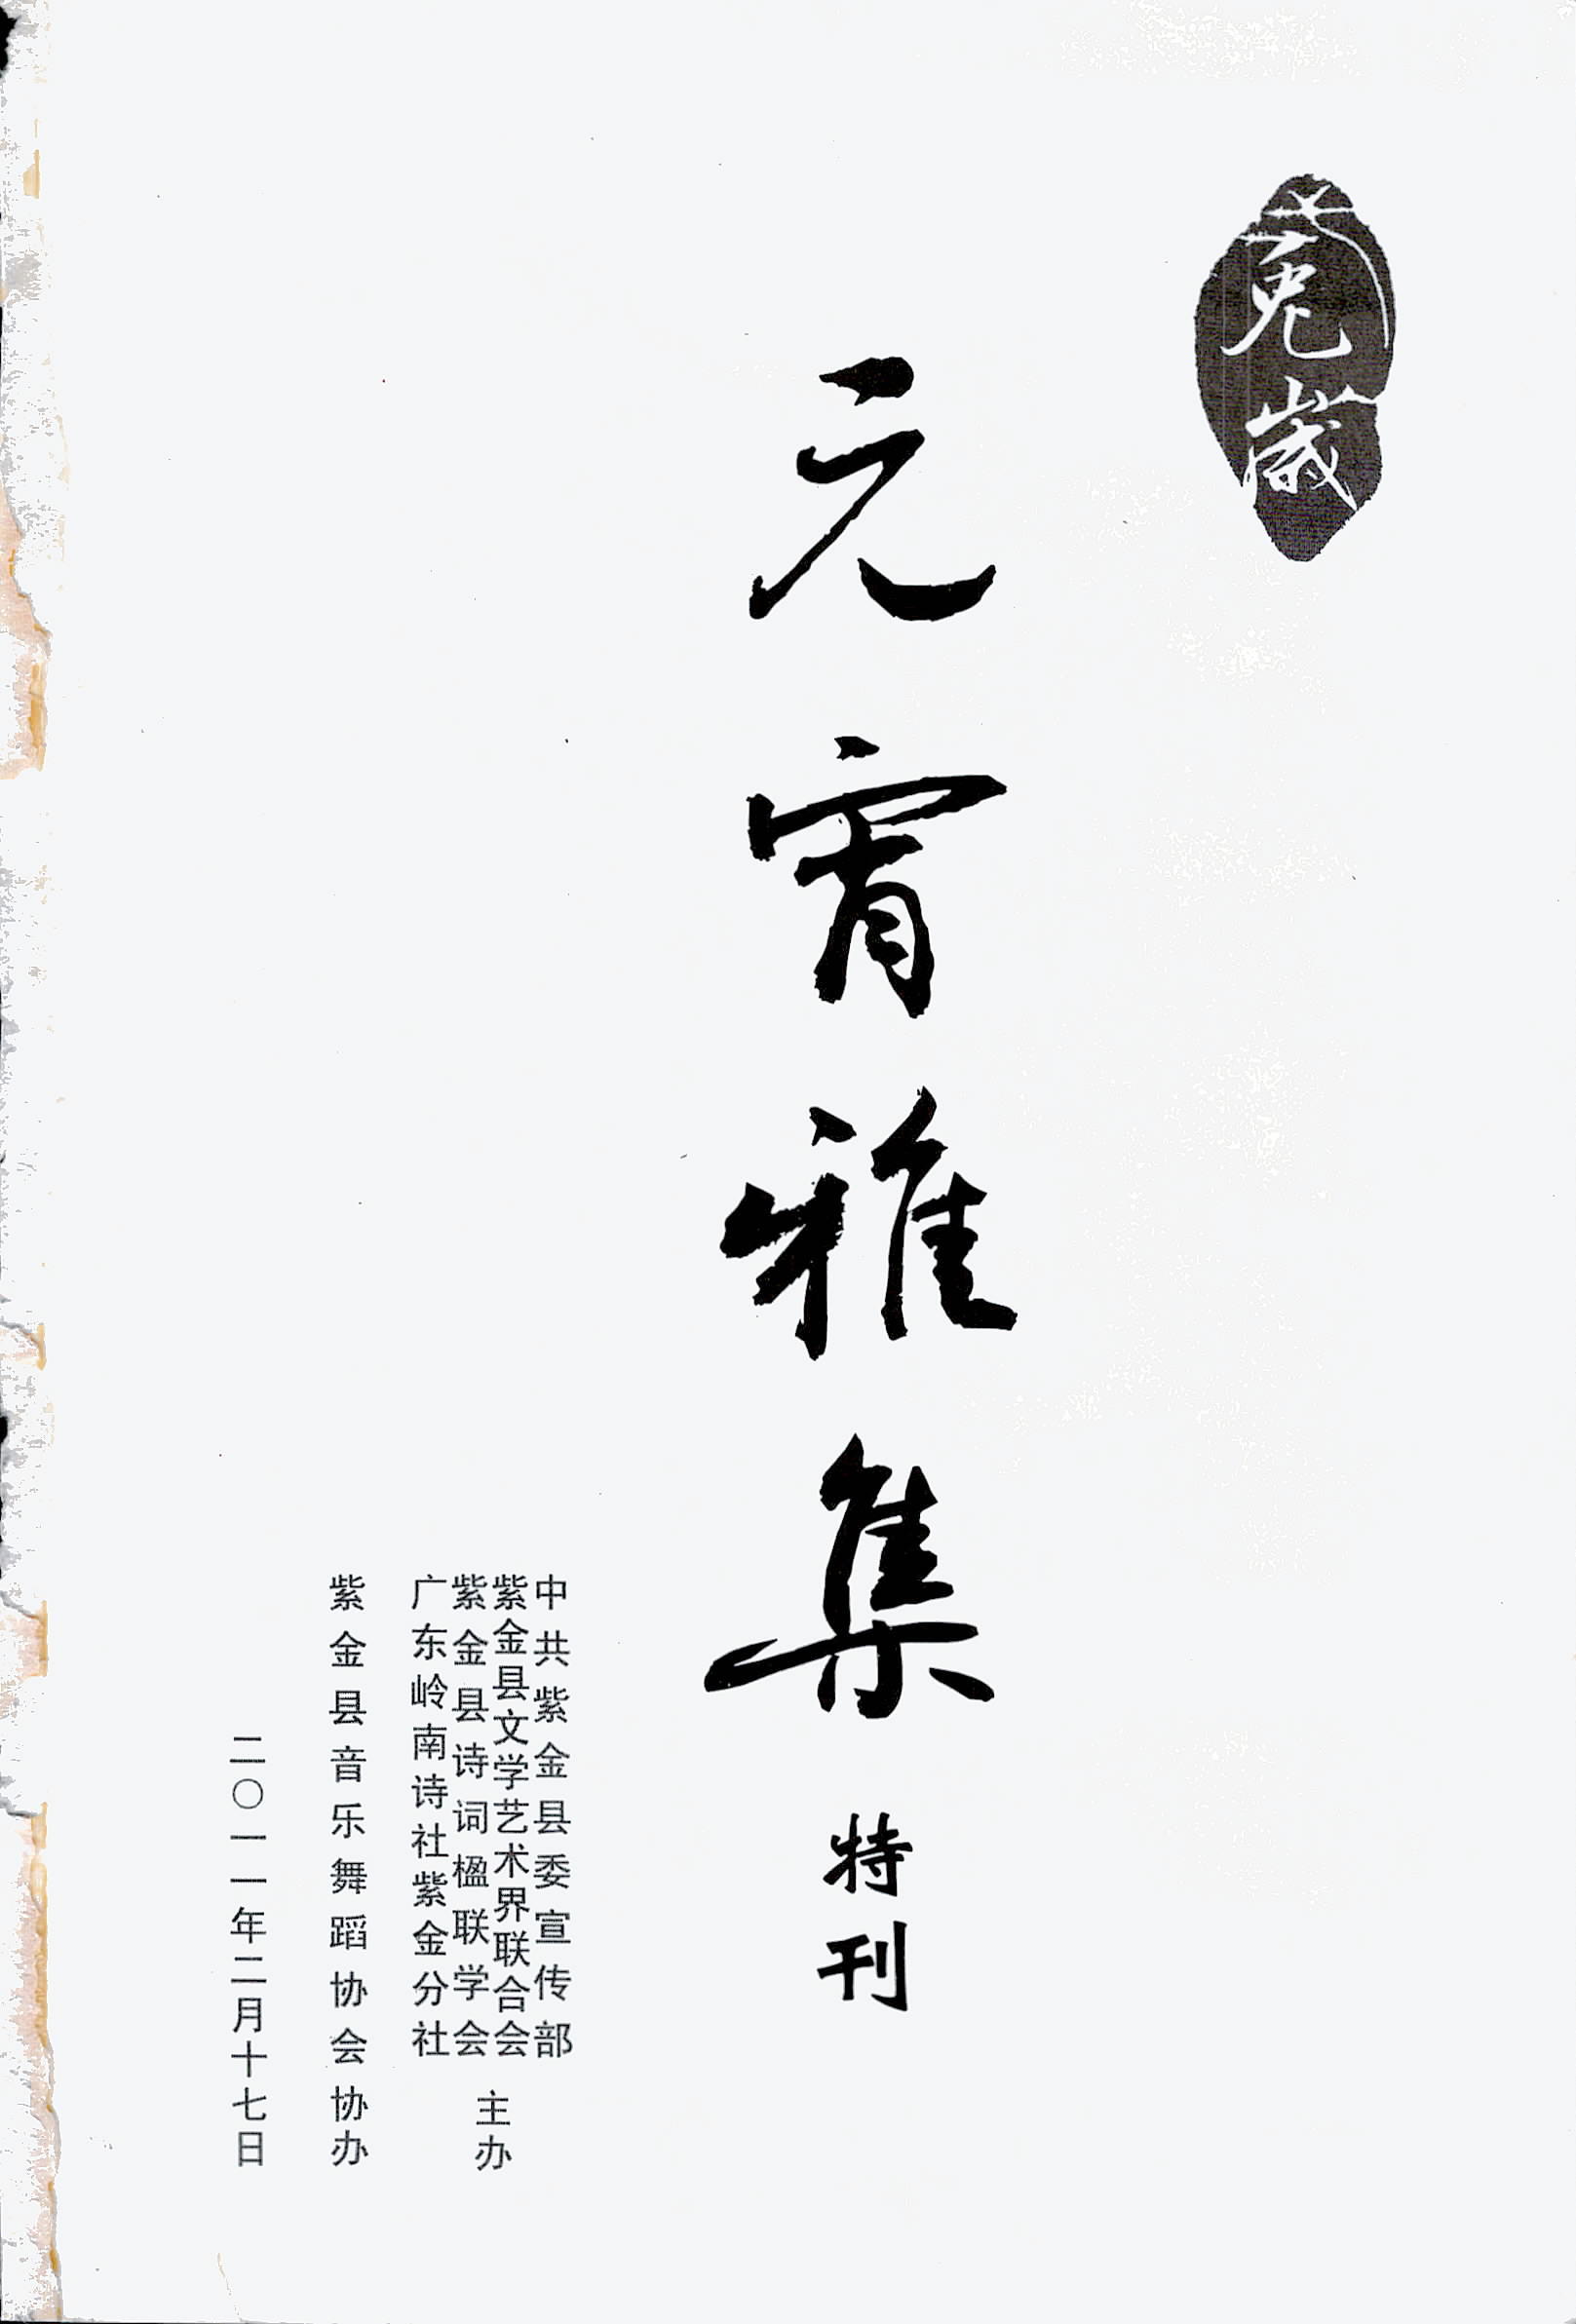 兔岁
元宵雅集
特刊
中共紫金县委宣传部
紫金县文学艺术界联合会
紫金县诗词楹联学会
广东岭南诗社紫金分社
主办
紫金县音乐舞蹈协会协办
二〇一一年二月十七日